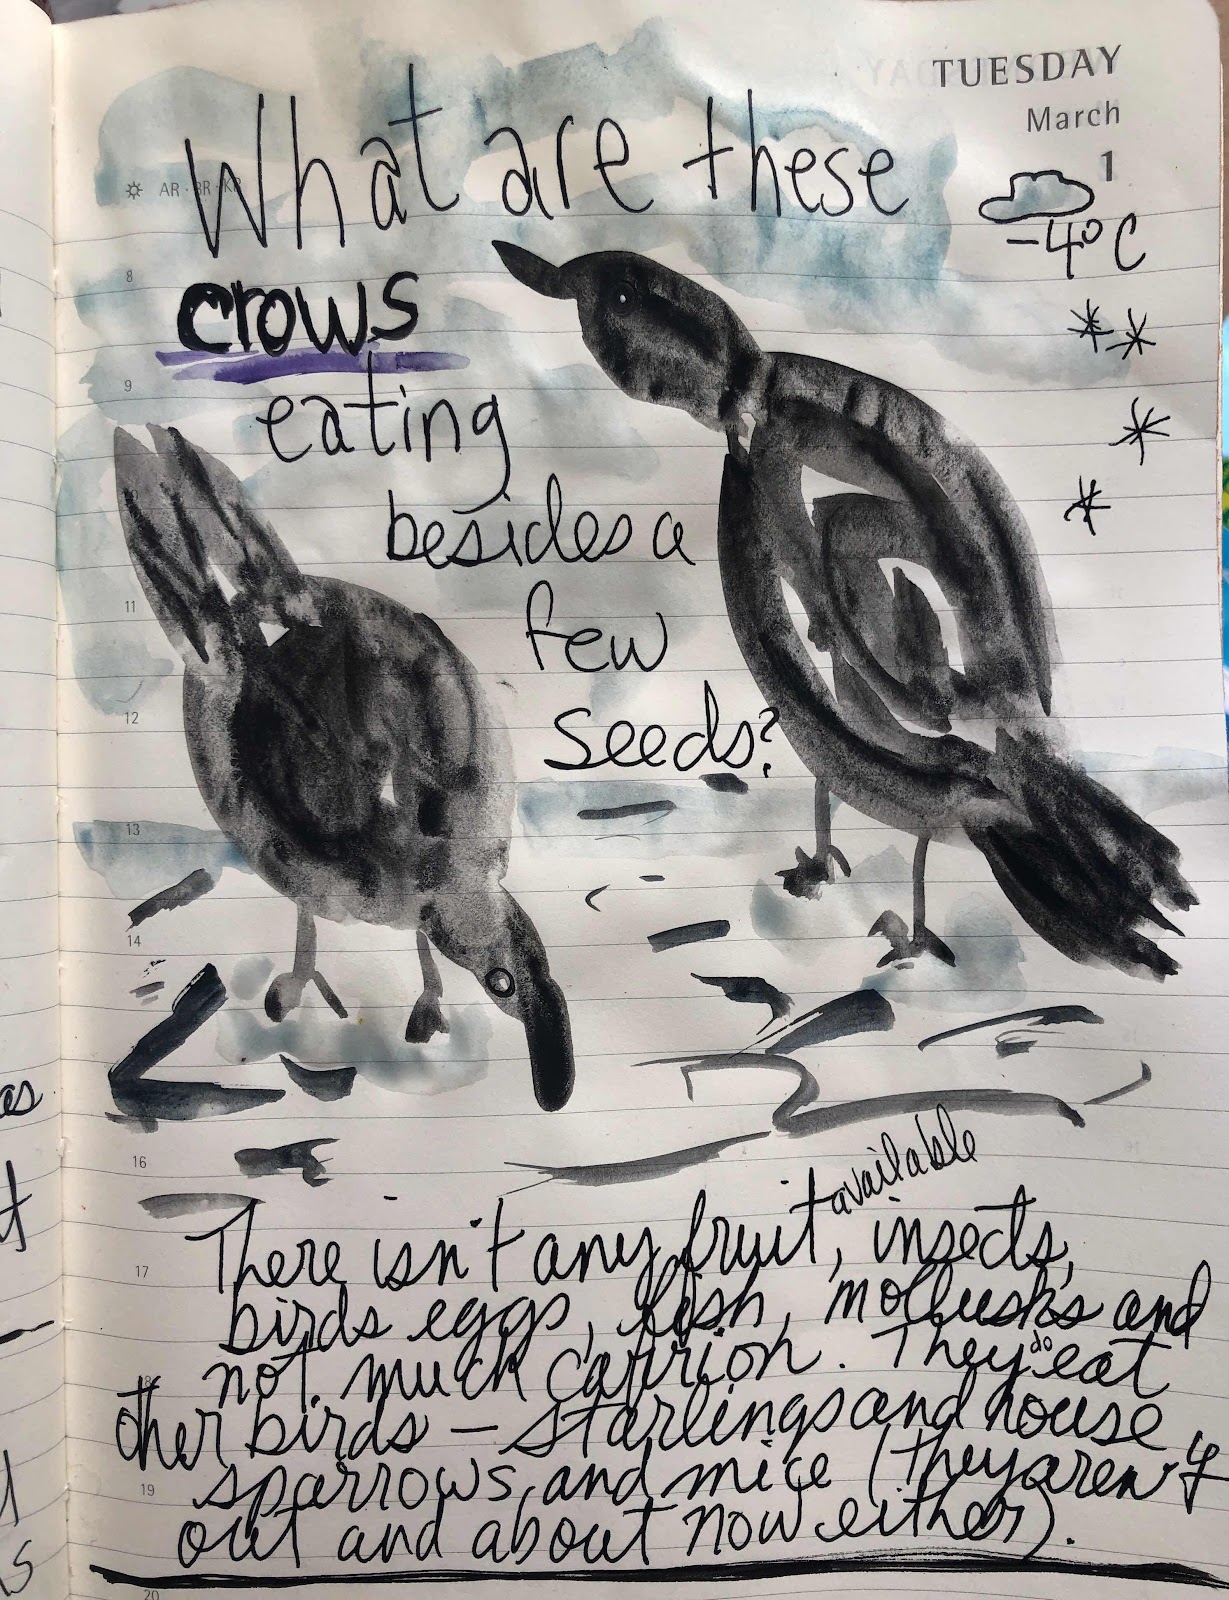 TUESDAY
March
1
-4°C
AR · BR · KR
What are these
crows
eating
besides a
few
seeds?
8
9
11
12
13
14
16
17
19
20
There isn't any fruit, available insects,
birds eggs, fish, mollusks and
not much carrion. They do eat
other birds – starlings and house
sparrows, and mice (they aren't
out and about now either).
as